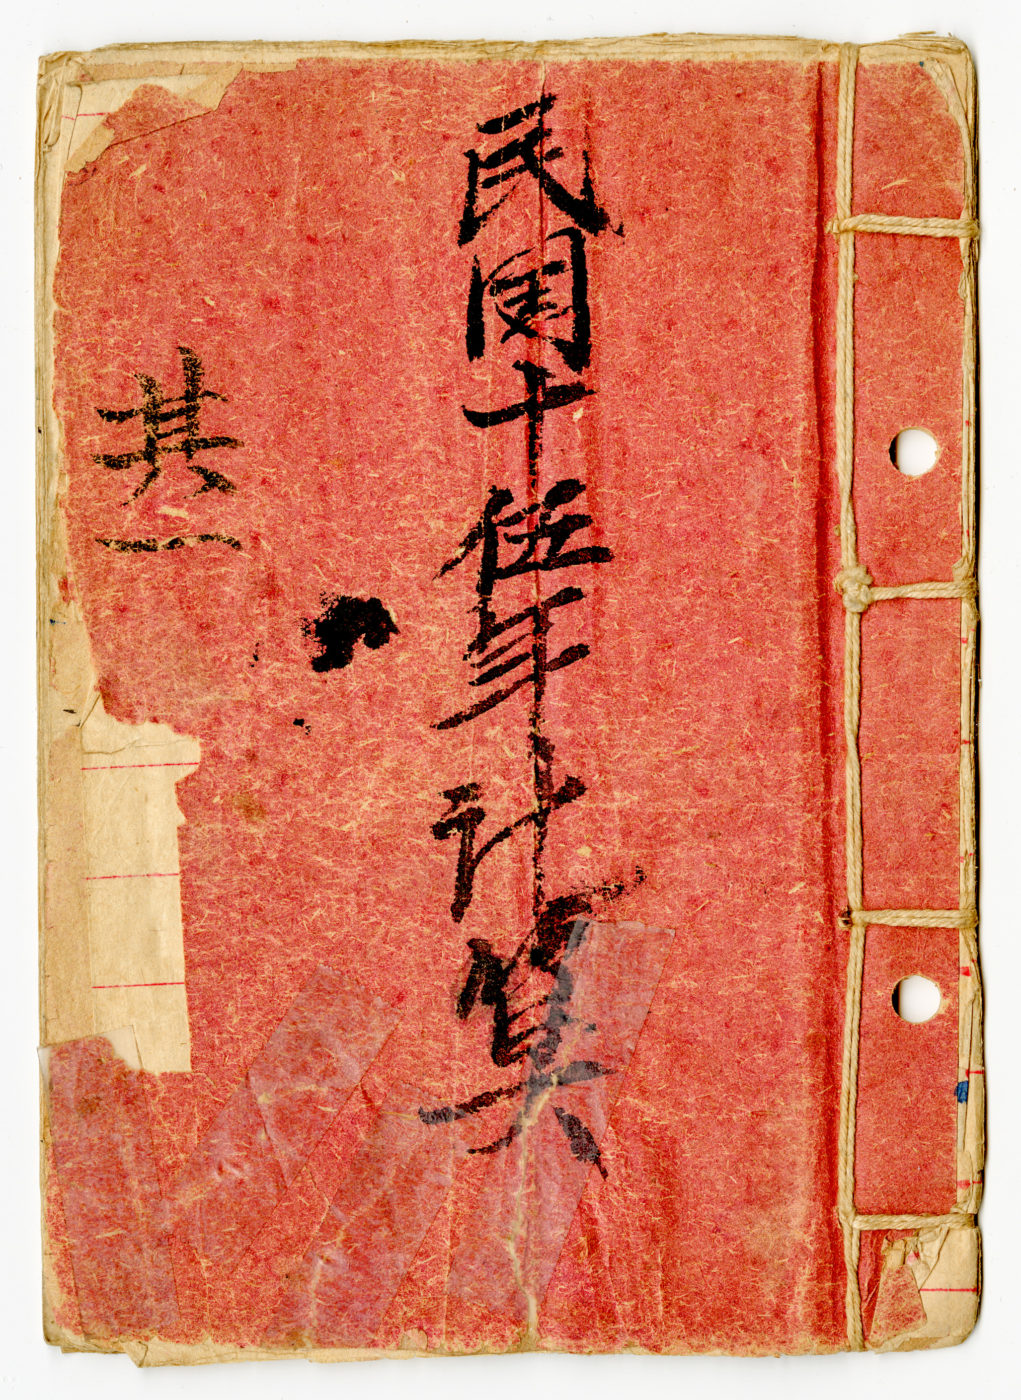 民國十伍年计算
其一